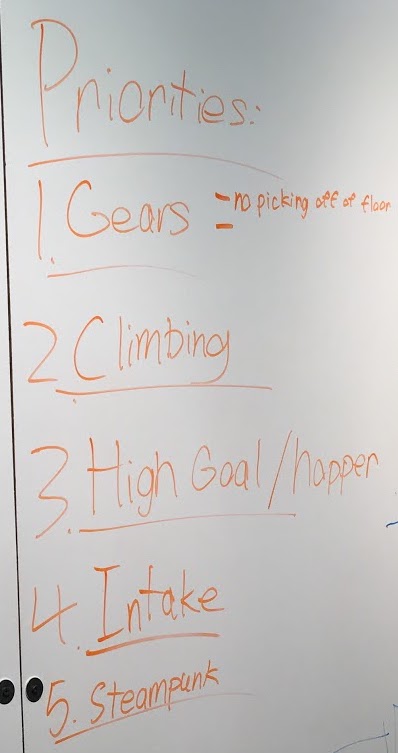 Priorities:
1. Gears = no picking off of floor
2. Climbing
3. High Goal/hopper
4. Intake
5. Steampunk